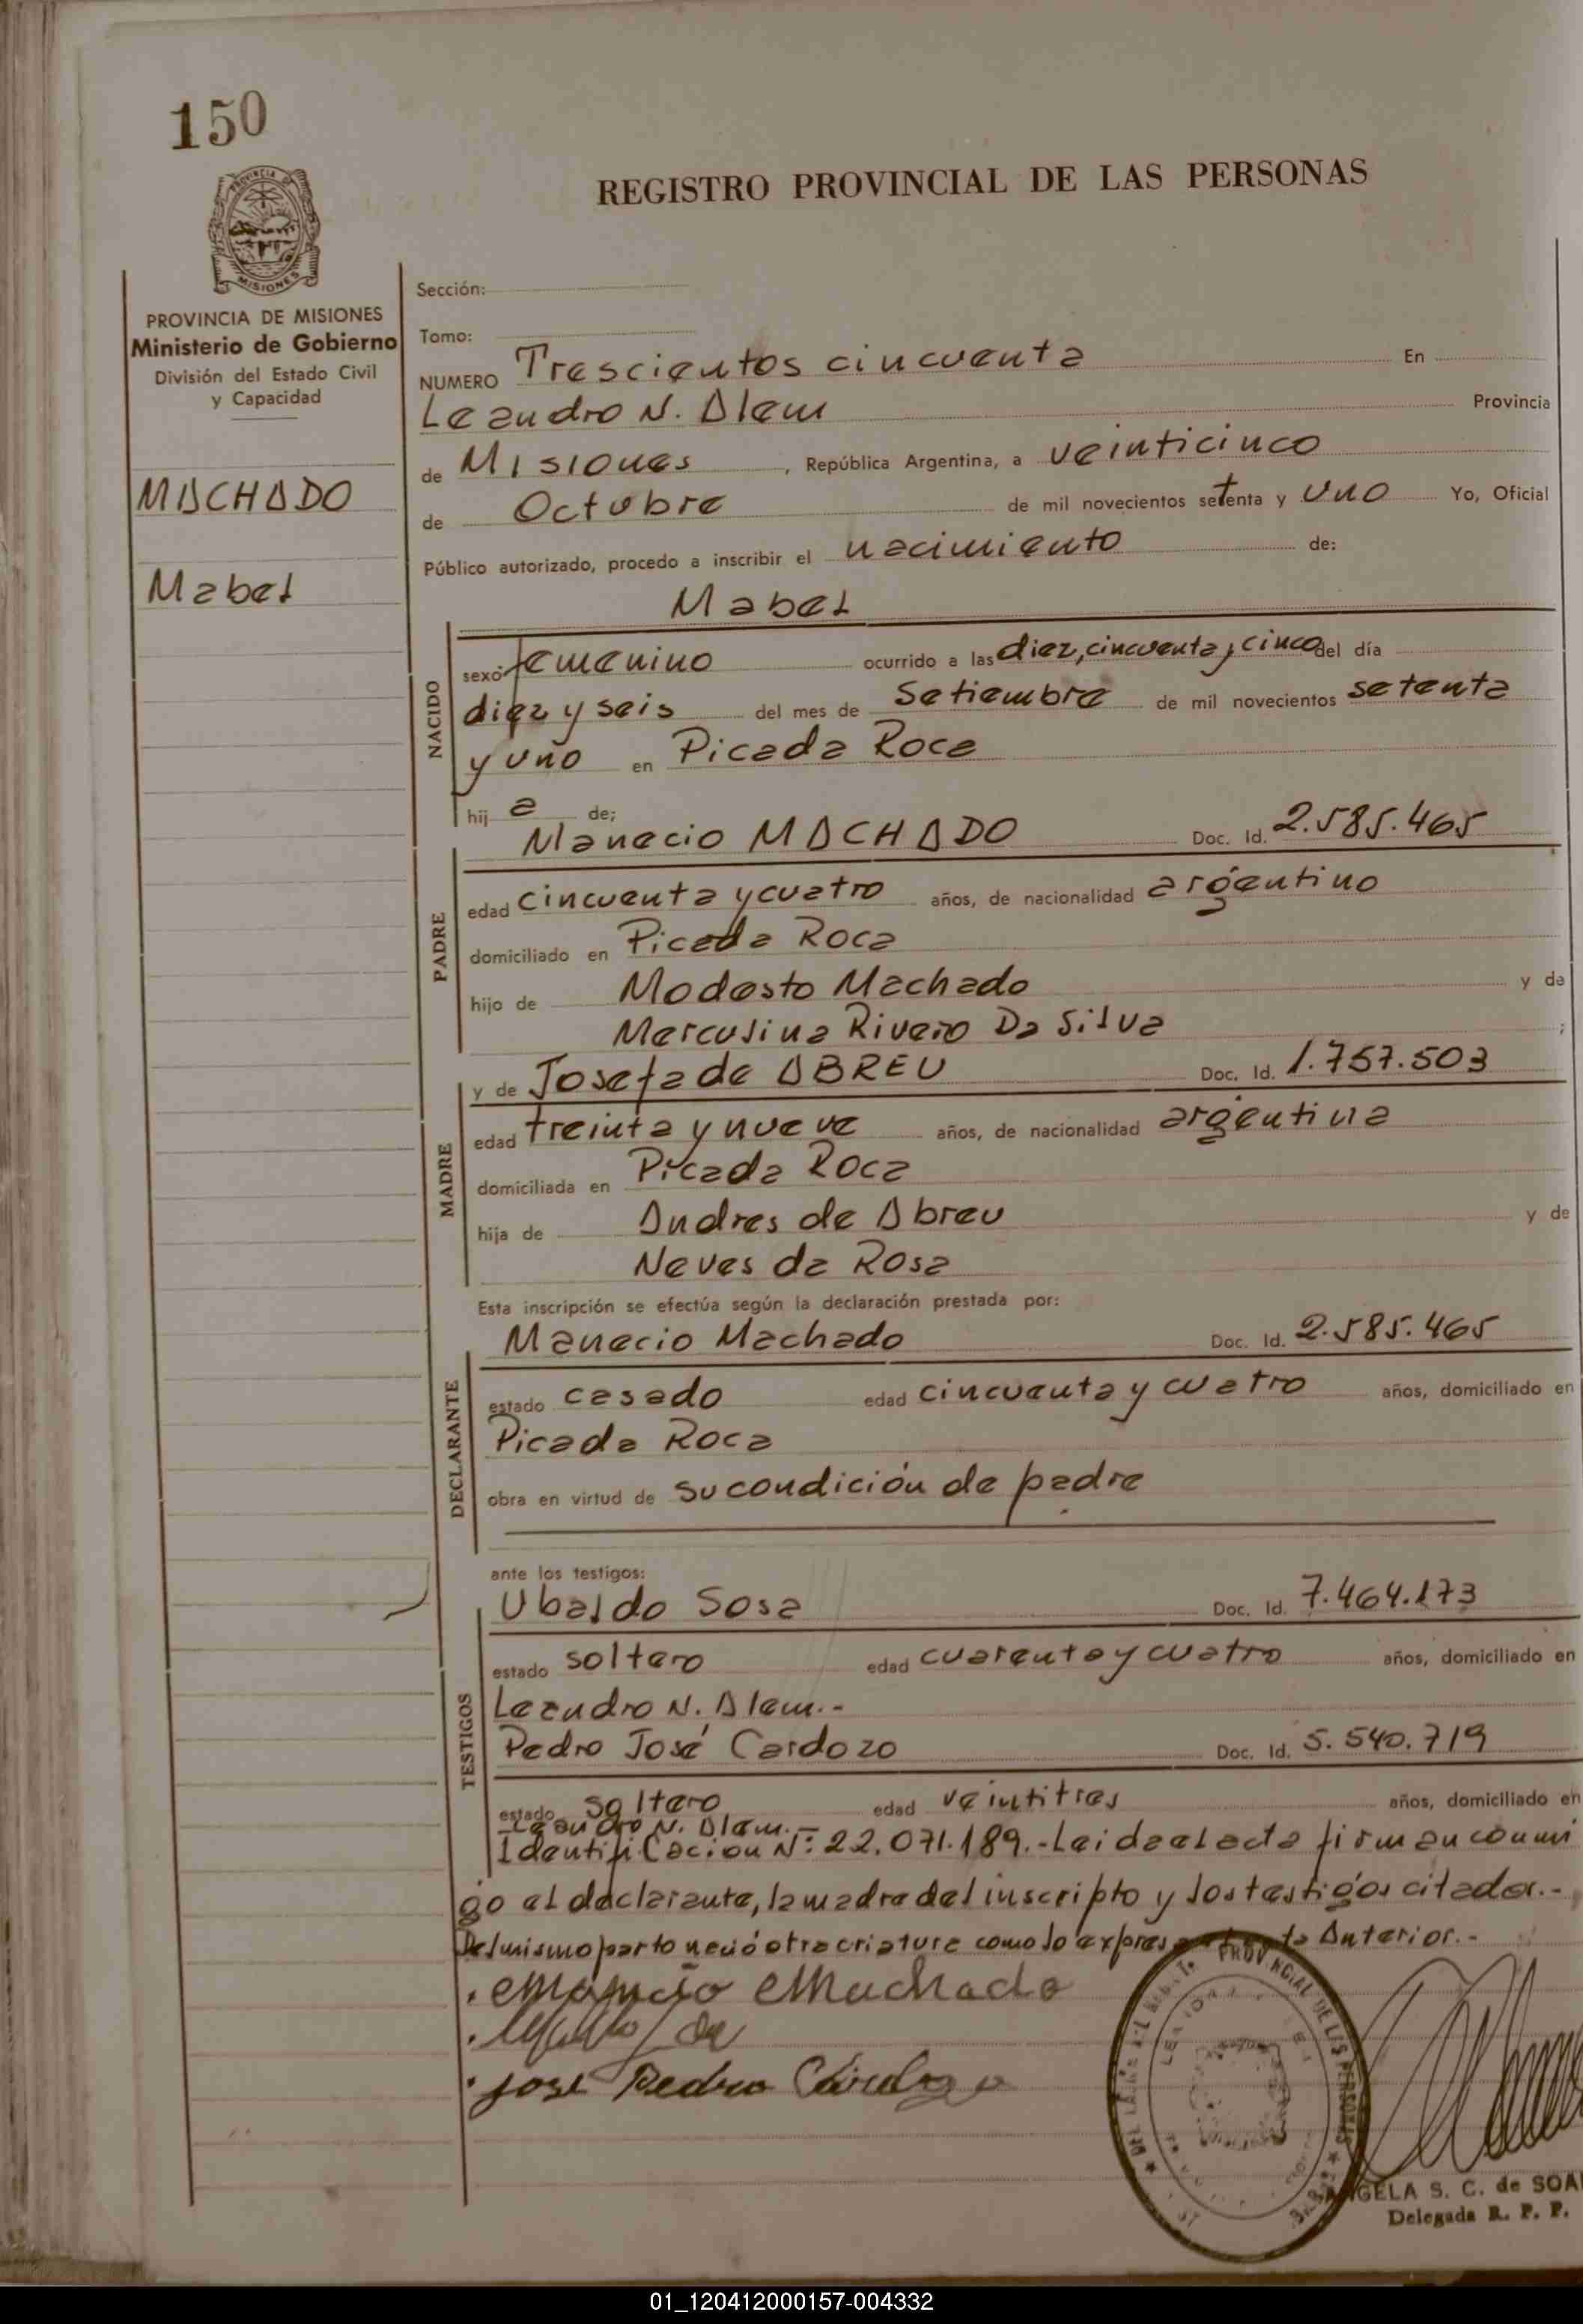 150
REGISTRO PROVINCIAL DE LAS PERSONAS
PROVINCIA
MISIONES
PROVINCIA DE MISIONES
Ministerio de Gobierno
División del Estado Civil
y Capacidad
MACHADO
Mabel
Sección:
Tomo:
NUMERO Trescientos cincuenta En
Leandro N. Alem Provincia
de Misiones, República Argentina, a veinticinco
de Octubre de mil novecientos setenta y uno Yo, Oficial
Público autorizado, procedo a inscribir el nacimiento de:
Mabel
NACIDO
sexo femenino ocurrido a las diez, cincuenta y cinco del día
diez y seis del mes de Setiembre de mil novecientos setenta
y uno en Picada Roca
hij a de;
Manecio MACHADO Doc. Id. 2.585.465
PADRE
edad cincuenta y cuatro años, de nacionalidad argentino
domiciliado en Picada Roca
hijo de Modesto Machado y de
Marculina Rivero Da Silva ;
y de Josefa de ABREU Doc. Id. 1.757.503
MADRE
edad treinta y nueve años, de nacionalidad argentina
domiciliada en Picada Roca
hija de Andres de Abreu y de
Neves da Rosa
Esta inscripción se efectúa según la declaración prestada por:
Manecio Machado Doc. Id. 2.585.465
DECLARANTE
estado casado edad cincuenta y cuatro años, domiciliado en
Picada Roca
obra en virtud de su condición de padre
ante los testigos:
Ubaldo Sosa Doc. Id. 7.464.173
TESTIGOS
estado soltero edad cuarenta y cuatro años, domiciliado en
Leandro N. Alem.-
Pedro José Cardozo Doc. Id. 5.540.719
estado soltero edad veintitres años, domiciliado en
Leandro N. Alem.-
Identificacion Nº: 22.071.189.- Leida el acta firman conmi
go el declarante, la madre del inscripto y los testigos citados.-
Del mismo parto nació otra criatura como lo expresa Anterior.-
Machado
José Pedro Cardozo
PROVINCIAL DE LAS PERSONAS
ANGELA S. C. de SOA
Delegada R. P. P.
01_120412000157-004332